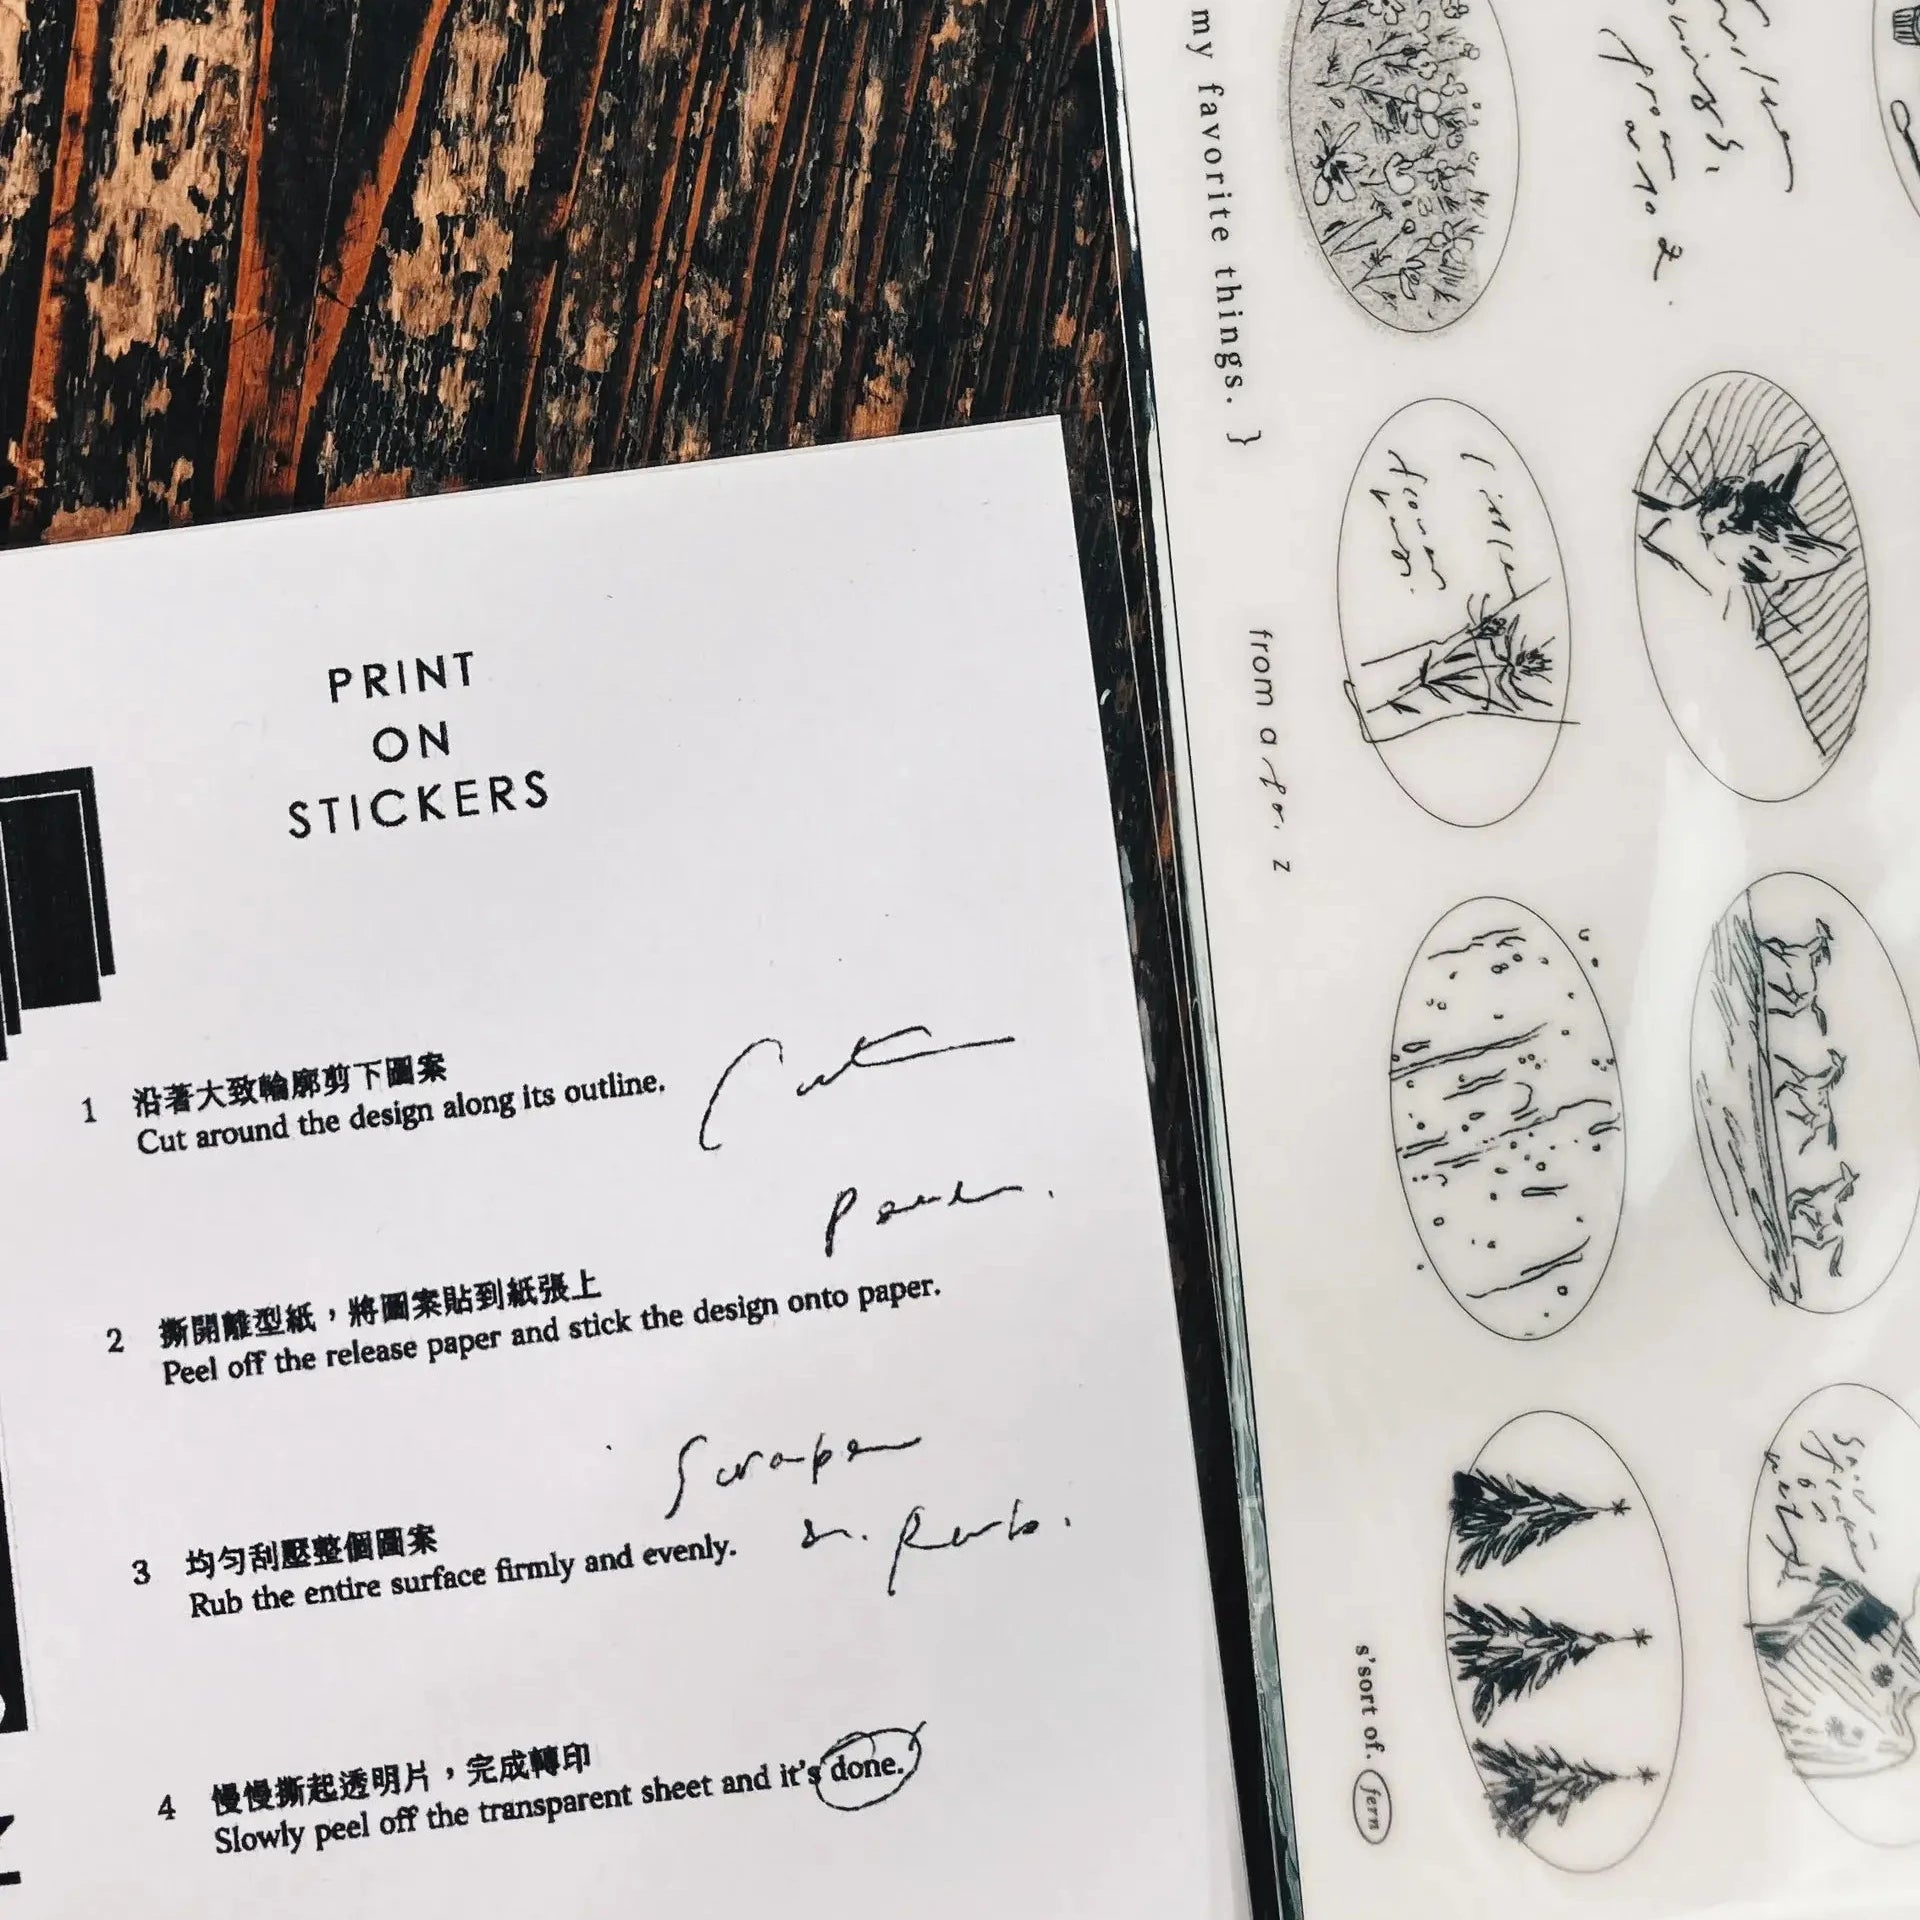 PRINT
ON
STICKERS
1 沿著大致輪廓剪下圖案
Cut around the design along its outline.
Cut
2 撕開離型紙，將圖案貼到紙張上
Peel off the release paper and stick the design onto paper.
3 均勻刮壓整個圖案
Rub the entire surface firmly and evenly.
Rub.
4 慢慢撕起透明片，完成轉印
Slowly peel off the transparent sheet and it's done.
my favorite things. }
from a to z
s'sort of. fern
from
a to z.